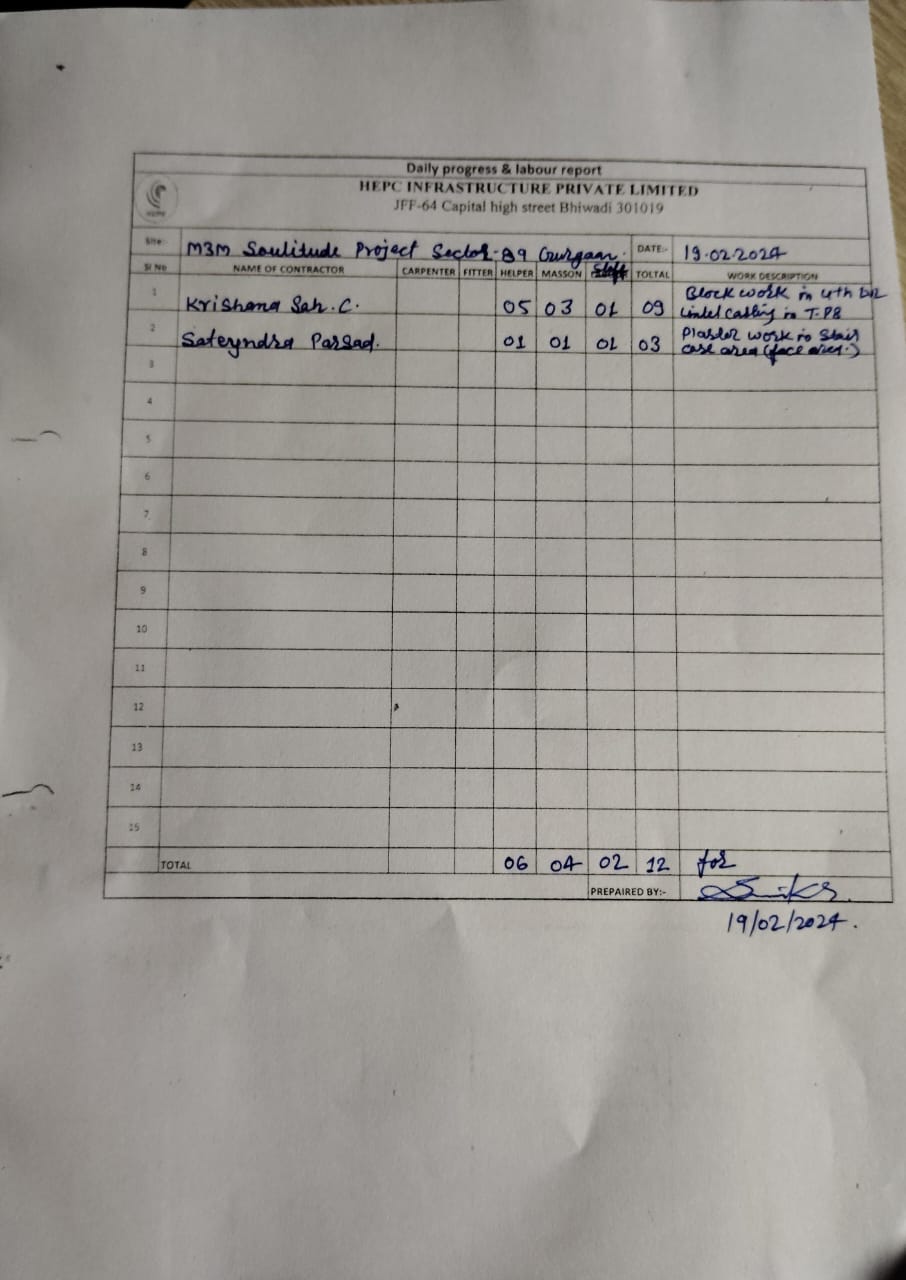 Daily progress & labour report
HEPC INFRASTRUCTURE PRIVATE LIMITED
JFF-64 Capital high street Bhiwadi 301019
Site:- M3M Soulitude Project Sector-89 Gurgaon. DATE:- 19.02.2024
Sl No NAME OF CONTRACTOR CARPENTER FITTER HELPER MASSON Staff TOLTAL WORK DESCRIPTION
1 Krishana Sah.C. 05 03 01 09 Block work in 4th
Lintel Casting in T-P8
2 Sateyndra Parsad. 01 01 01 03 Plaster work in Stair
case area (face area.)
3
4
5
6
7
8
9
10
11
12
13
14
15
TOTAL 06 04 02 12 for
PREPAIRED BY:-
19/02/2024.